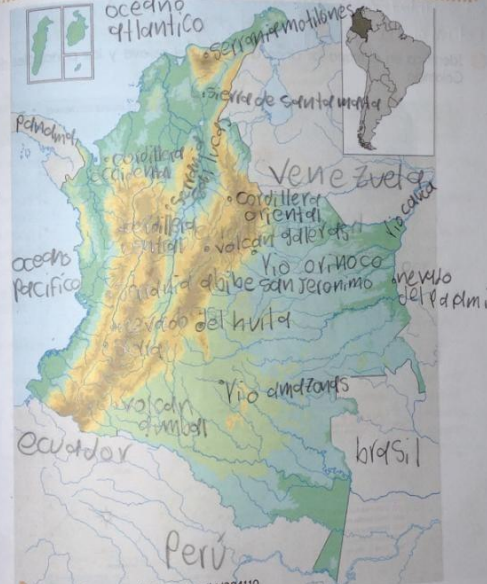 oceano
atlantico
serrania motilones
sierra de santa marta
panama
cordillera
occidental
serrania
san lucas
venezuela
cordillera
oriental
rio cauca
cordillera
central
volcan galeras
rio orinoco
oceano
pacifico
abibe san jeronimo
nevado
del
nevado del huila
rio amazonas
volcan
cumbal
ecuador
brasil
Perú